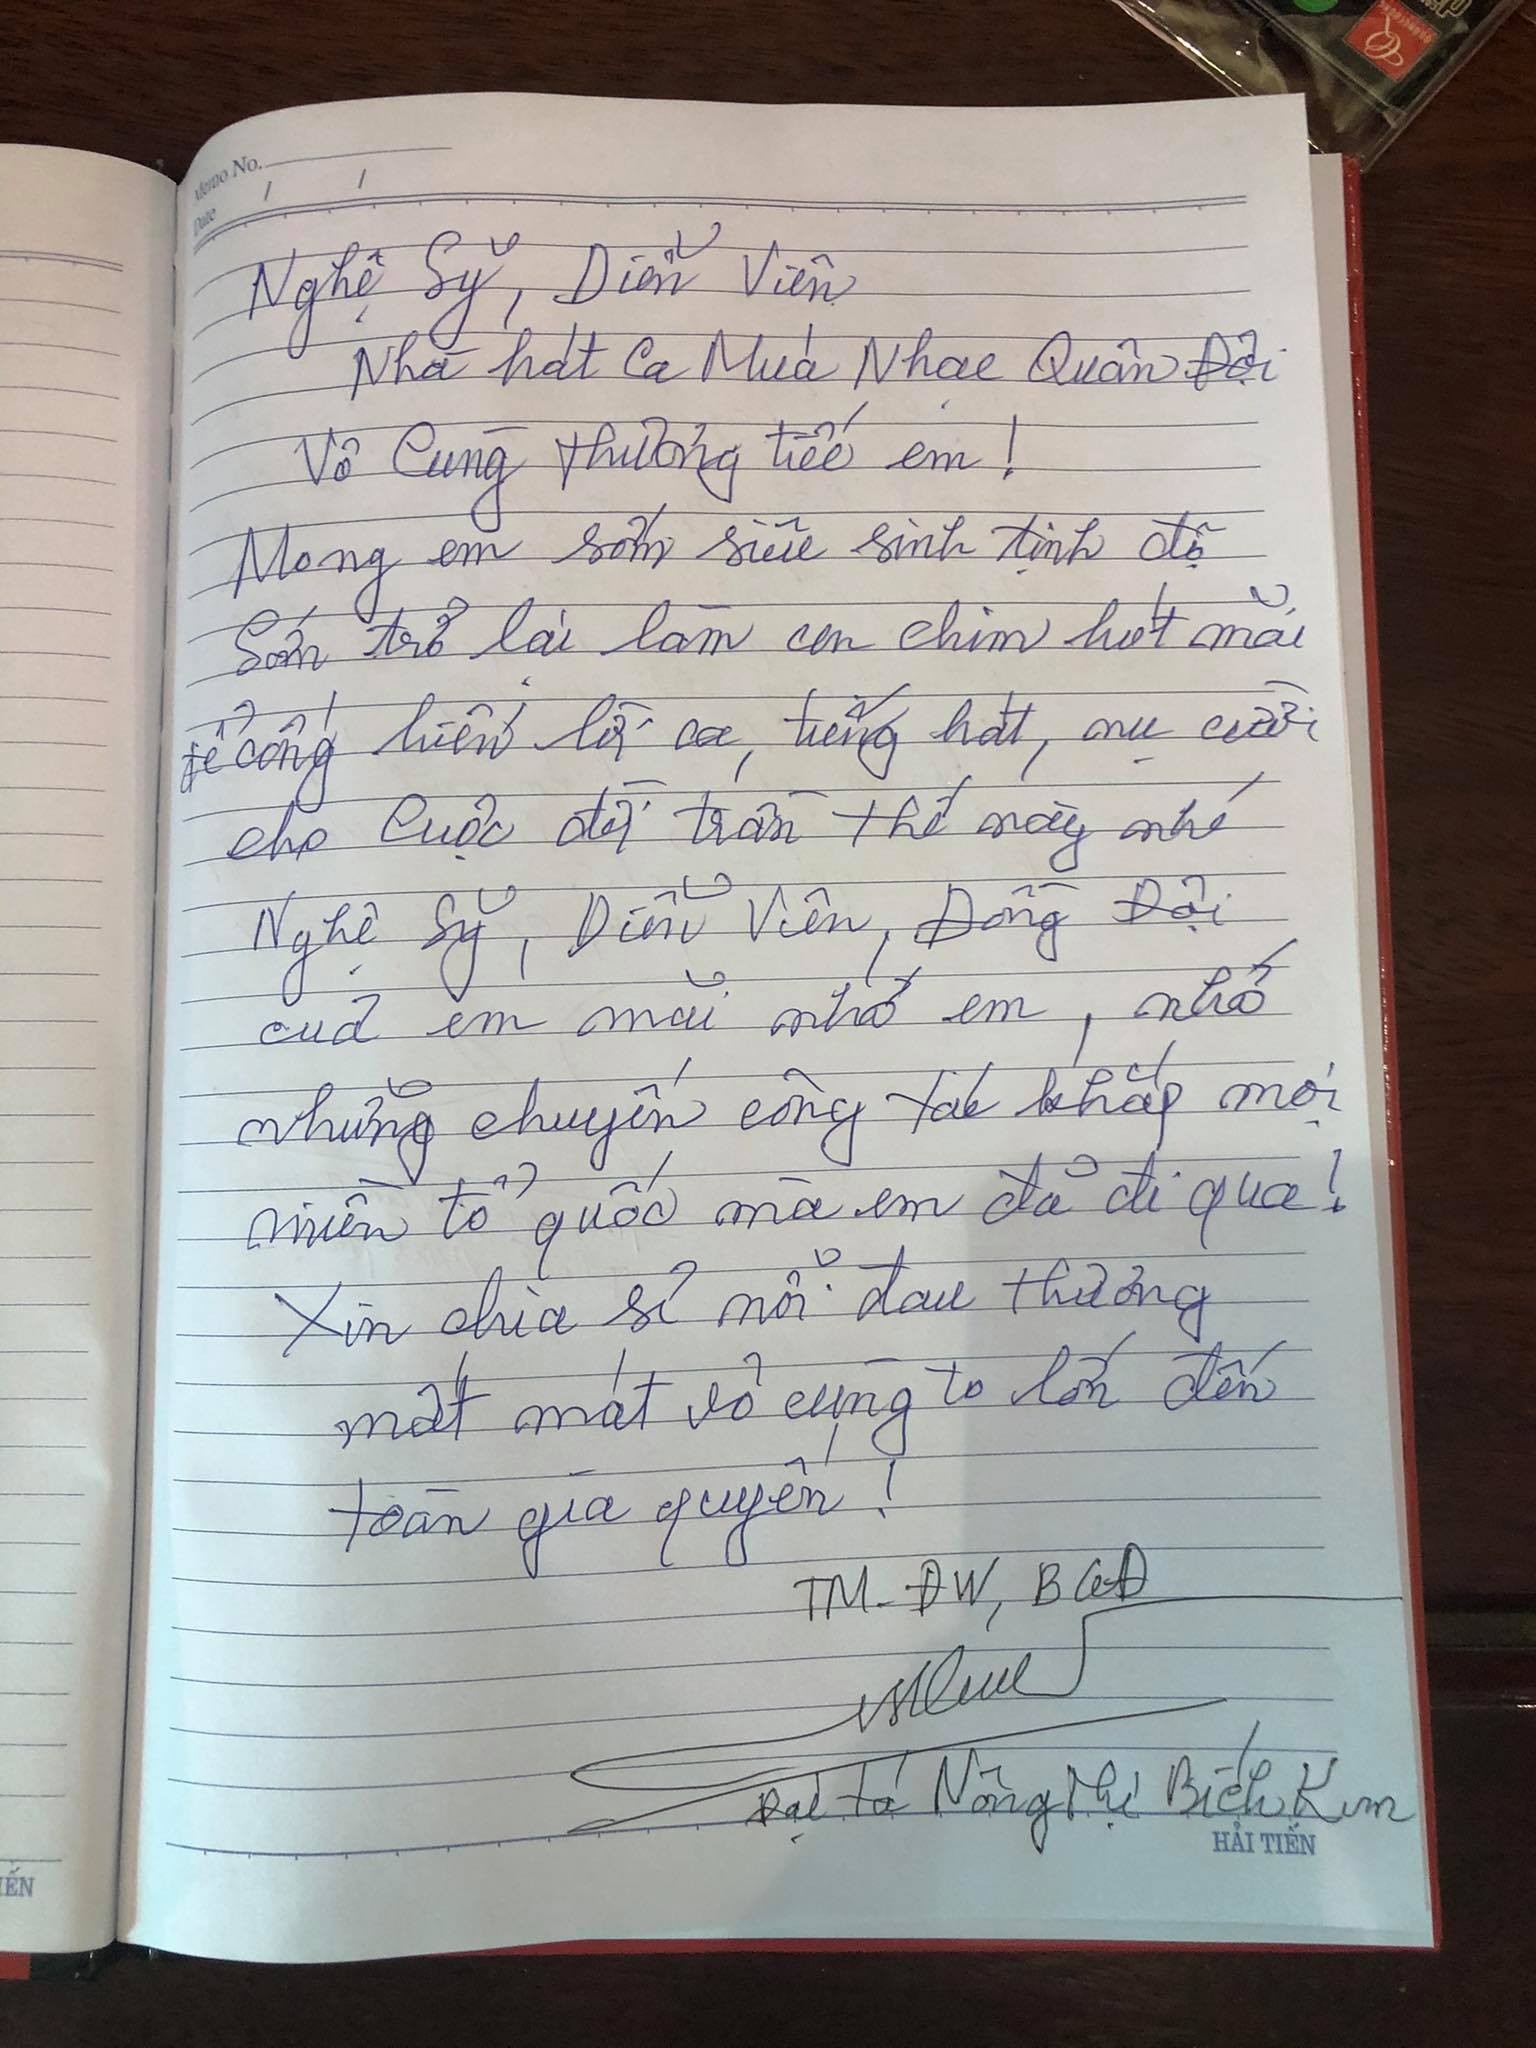 Memo No.
Date / /
Nghệ Sỹ, Diễn Viên
Nhà hát Ca Múa Nhạc Quân Đội
Vô Cùng thương tiếc em!
Mong em sớm siêu sinh tịnh độ
Sớm trở lại làm con chim hót mãi
để cống hiến lời ca, tiếng hát, nụ cười
cho Cuộc đời trần thế này nhé
Nghệ Sỹ, Diễn Viên, Đồng Đội
của em mãi nhớ em, nhớ
những chuyến công tác khắp mọi
miền tổ quốc mà em đã đi qua!
Xin chia sẻ nỗi đau thương
mất mát vô cùng to lớn đến
toàn gia quyến!
TM-ĐW, BGĐ
Đại tá Nông Thị Bích Kim
HẢI TIẾN
IẾN